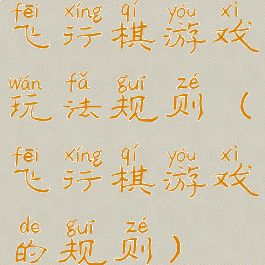 fēi xíng qí yóu xì
飞行棋游戏
wán fǎ guī zé
玩法规则（
fēi xíng qí yóu xì
飞行棋游戏
de guī zé
的规则）